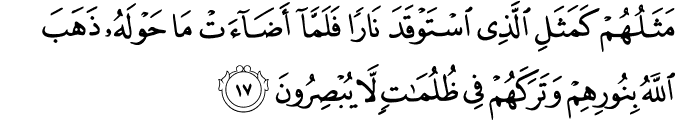 مَثَلُهُمْ كَمَثَلِ ٱلَّذِى ٱسْتَوْقَدَ نَارًا فَلَمَّآ أَضَآءَتْ مَا حَوْلَهُۥ ذَهَبَ
ٱللَّهُ بِنُورِهِمْ وَتَرَكَهُمْ فِى ظُلُمَـٰتٍ لَّا يُبْصِرُونَ ١٧